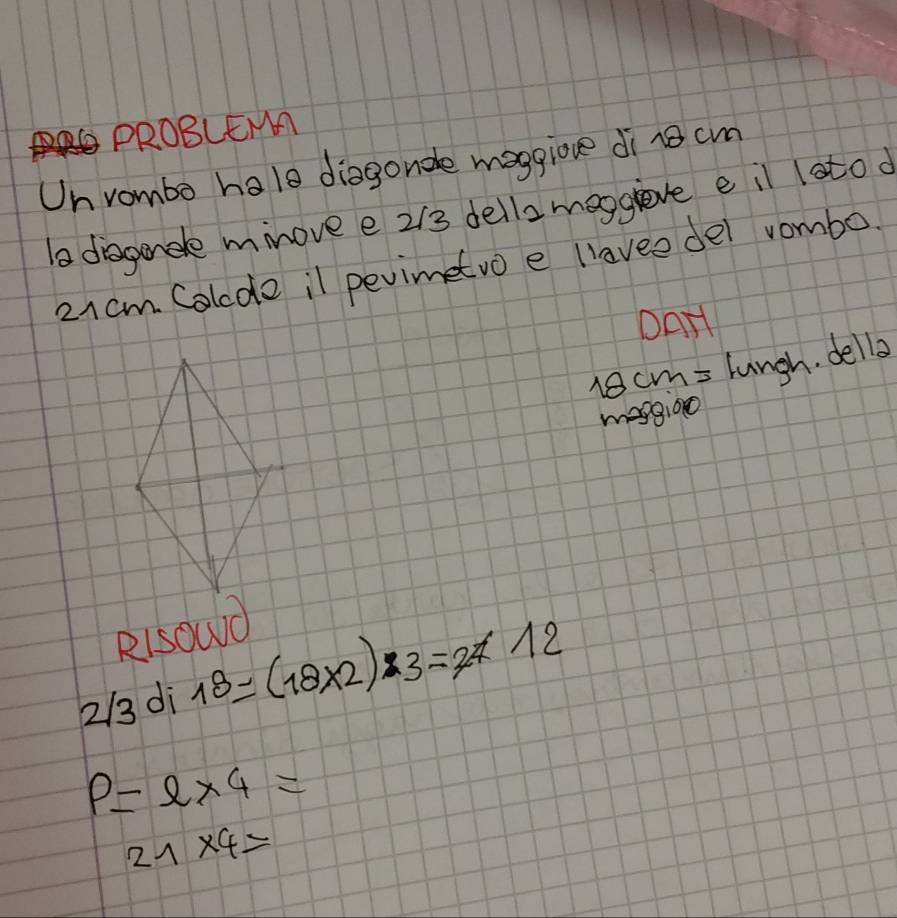 PROBLEMA
Un rombo ha la diagonale maggiore di 18 cm
la diagonale minore e 2/3 della maggiore e il lato d
21 cm. Calcola il perimetro e l'area del rombo.
DATI
18 cm = lungh. della
maggio
RISOLVO
2/3 di 18 = (18×2) : 3 = 12
P = l × 4 =
21 × 4 =